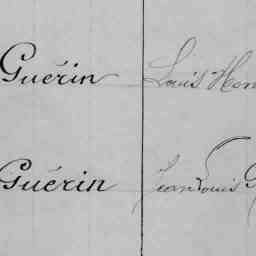 Guérin Louis Hon
Guérin Jean Louis